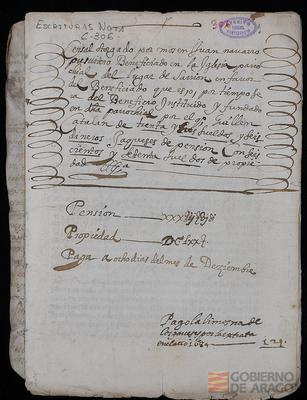 ESCRITURAS NOTA
C-306
Censal cargado por mosen Juan navarro
presvitero Beneficiado en la Iglesia parro
chial del lugar de Sarrion en favor
del Beneficiado que es o por tiempo se
ra del Beneficio Instituido y fundado
en dha parrochial por el qº Guillen
Catalan de trenta y tres sueldos y seis
dineros Jaqueses de pension Con seis
cientos y setenta sueldos de propie
dad
Pension xxxiij ss vj
Propiedad DClxx
Paga a ocho dias del mes de Deziembre
Pago la limosna de
en el año 1664
GOBIERNO
DE ARAGON